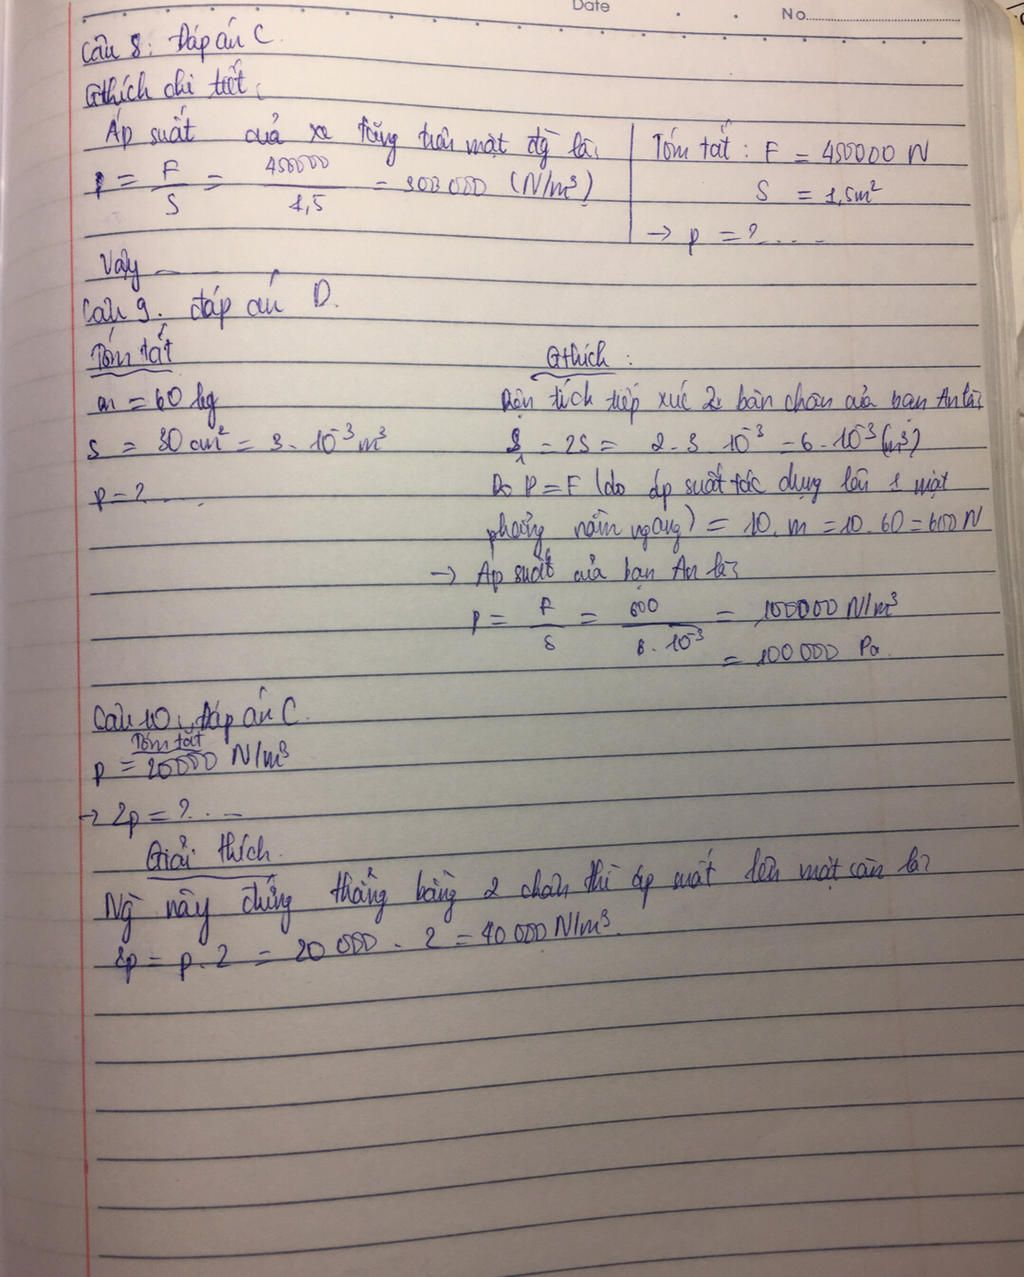 Date
No
Câu 8: Đáp án C.
Gthích chi tiết:
Áp suất của xe tăng trên mặt đg là:
p = F/S = 450000/1,5 = 300 000 (N/m³)
Tóm tắt: F = 450000 N
S = 1,5m²
→ p = ?....
Vậy
Câu 9. đáp án D.
Tóm tắt
m = 60 kg
S = 30 cm² = 3.10⁻³ m³
p = ?...
Gthích:
Diện tích tiếp xúc 2 bàn chân của bạn An là:
S₁ = 2S = 2.3.10⁻³ = 6.10⁻³ (m³)
Do P = F (do áp suất tác dụng lên 1 mặt
phẳng nằm ngang) = 10.m = 10.60 = 600 N
→ Áp suất của bạn An là:
p = F/S = 600/6.10⁻³ = 100000 N/m³
= 100 000 Pa.
Câu 10: Đáp án C.
Tóm tắt
p = 20000 N/m³
→ 2p = ?...
Giải thích.
Ng` này đứng thẳng bằng 2 chân thì áp suất lên mặt sàn là:
2p = p.2 = 20 000 . 2 = 40 000 N/m³.